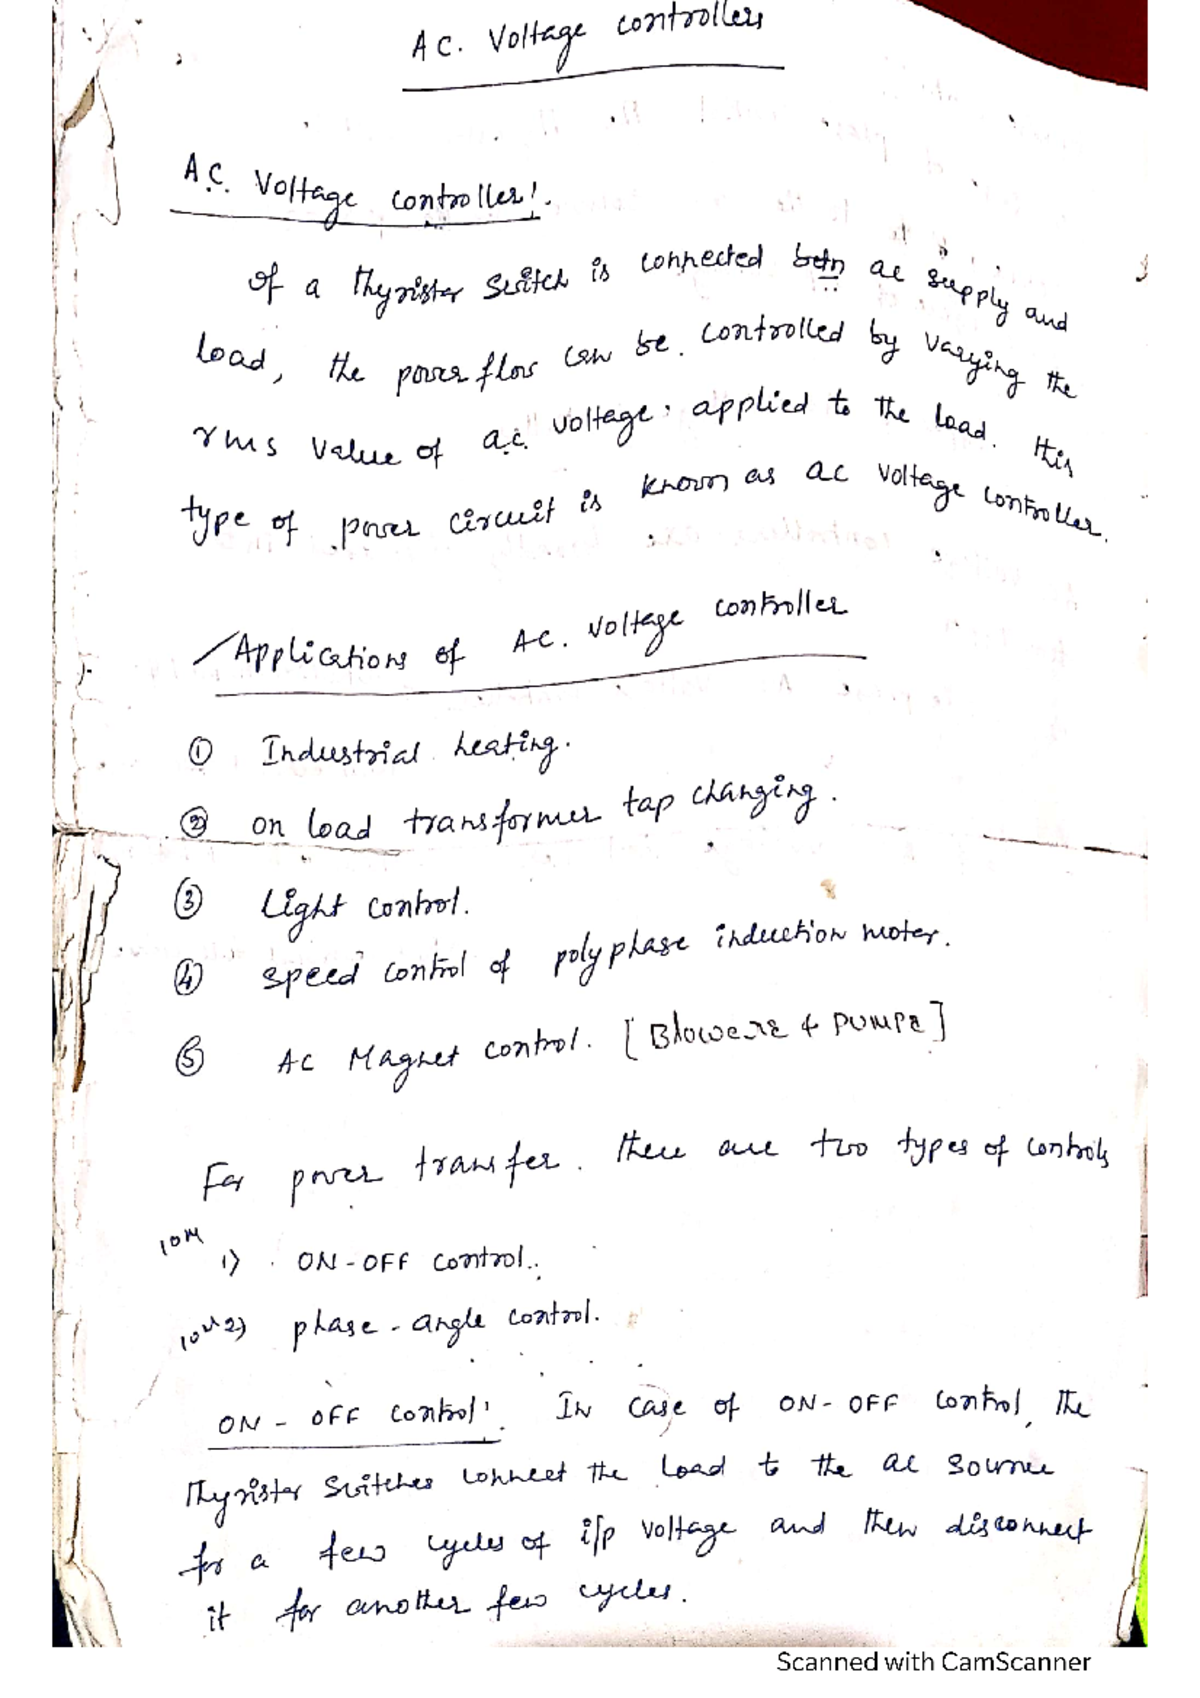 A C. Voltage controllers
A.C. Voltage controller:.
If a thyristor switch is connected betn ac supply and
load, the power flow can be controlled by varying the
rms value of a.c. voltage applied to the load. this
type of power circuit is known as ac voltage controller.
Applications of AC. Voltage controller
① Industrial heating.
② on load transformer tap changing.
③ Light control.
④ speed control of polyphase induction motor.
⑤ AC Magnet control. [Blowers & PUMPS]
For power transfer. there are two types of controls
10M 1) ON-OFF control.
10M 2) phase-angle control.
ON-OFF control: In case of ON-OFF control, the
thyristor switches connect the load to the ac source
for a few cycles of i/p voltage and then disconnect
it for another few cycles.
Scanned with CamScanner